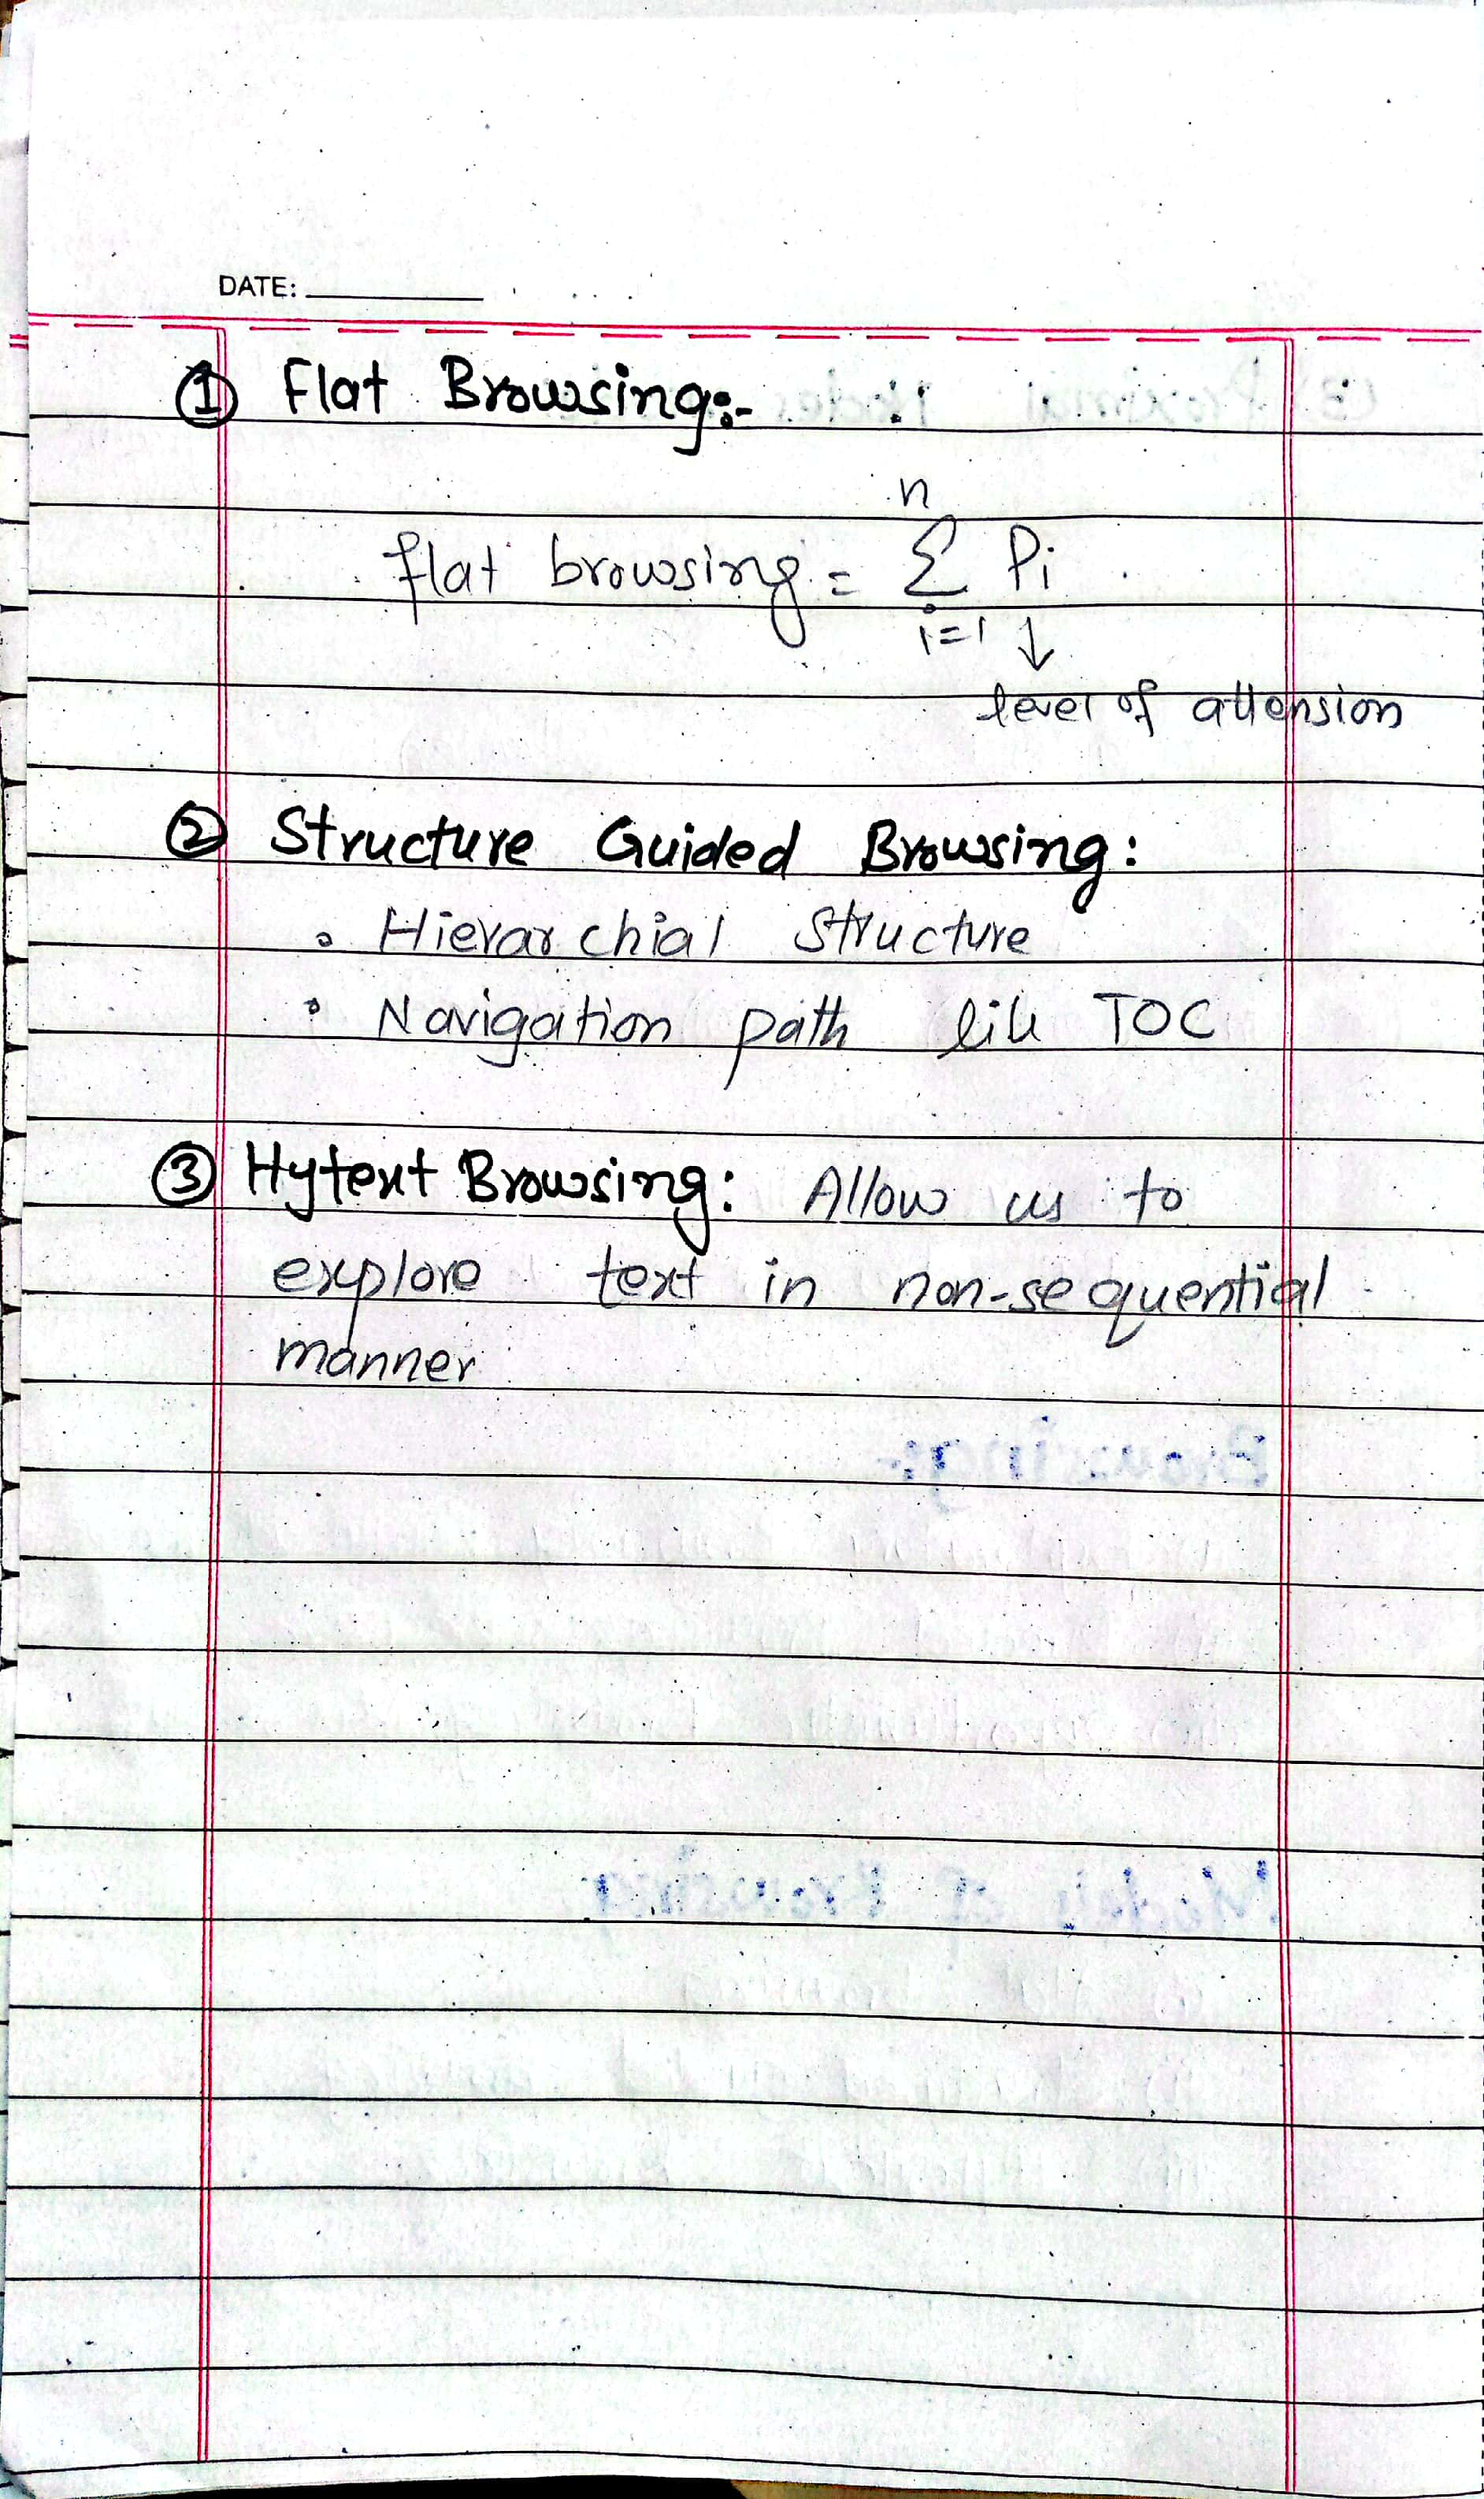 DATE:
① Flat Browsing:-
n
flat browsing = Σ Pi
i=1 ↓
level of attension
② Structure Guided Browsing:
∘ Hierarchial Structure
∘ Navigation path like TOC
③ Hytext Browsing: Allow us to
explore text in non-sequential
manner